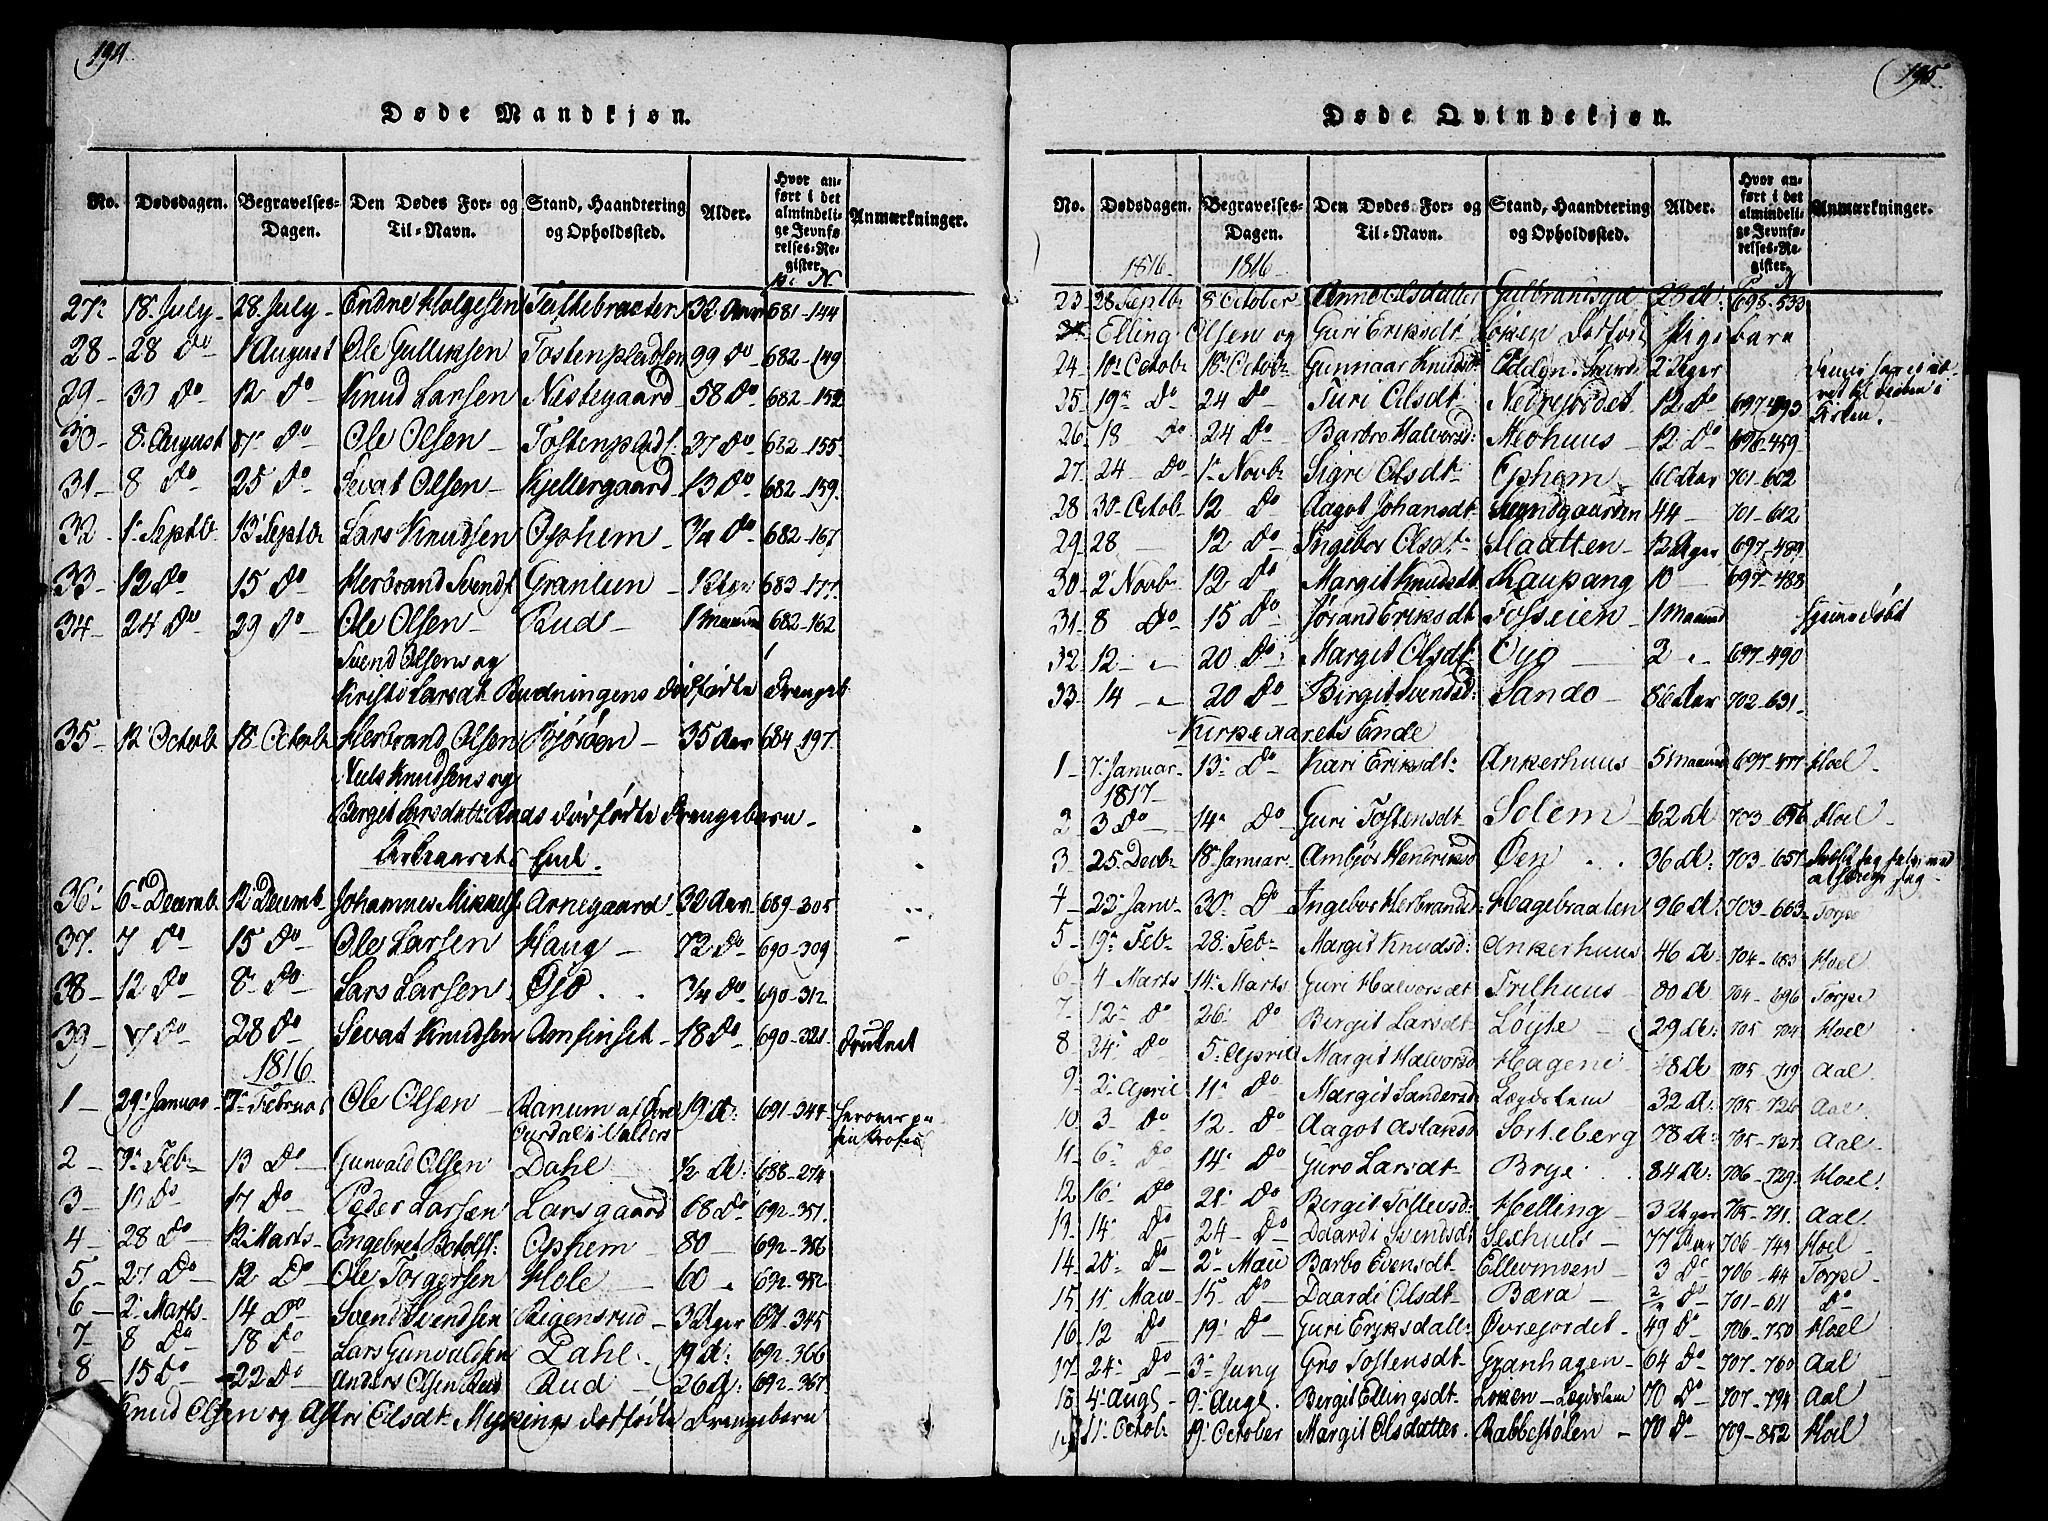 194
Døde Mandkjøn.
No. Dødsdagen. Begravelses-Dagen. Den Dødes For- og Til-Navn. Stand, Haandtering og Opholdssted. Alder. Hvor anført i det almindelige Jevnførelses-Register. Anmærkninger.
P. N.
27 18 July 28 July Endre Holgesen Tuftebraaten 32 Aar 681-144
28 28 Do 1 August Ole Gulliksen Tostenpladsen 99 Do 682-149
29 30 Do 12 Do Knud Larsen Nestegaard 58 Do 682-152
30 8 August Do Ole Olsen Tostenplads 37 Do 682-155
31 8 Do 25 Do Sevat Olsen Kjellergaard 13 Do 682-159
32 1 Septb 13 Septb Lars Knudsen Opshem 3/4 Do 682-167
33 12 Do 15 Do Herbrand Svends Granlien 683-177
34 24 Do 29 Do Ole Olsen Rud 1 Maaned 682-162
Svend Olsens og
Kristi Larsdt Rudningens dødfødte Drengeb
35 12 Octorb 18 Octorb Herbrand Olsen Bjøröen 35 Aar 684-197
Niels Knudsens og
Bergit Larsdatt: Ruds dødfødte Drengebarn
Kirkeaarets Ende.
36 6 Decemb 12 Decemb Johannes Mikkels Arnegaard 32 Aar 689-305
37 7 Do 15 Do Ole Larsen Haug 72 Do 690-309
38 12 Do Do Lars Larsen Öjo 3/4 Do 690-312
39 7 Do 28 Do Sevat Knudsen 18 Do 690-321 Druknet
1816
1 29 Januar 7 Februar Ole Olsen Ranum af Ourdal i Valders 19 A: 691-344
2 7 Feb 13 Do Gunvald Olsen Dahl 1/2 A: 688-274
3 10 Do 17 Do Peder Larsen Larsgaard 68 Do 692-351
4 28 Do 12 Marts Engebret Botolfs: Opshem 80 692-356
5 27 Do 12 Do Ole Torgersen Hole 60 692-352
6 2 Marts 14 Do Svend Svendsen Regensrud 3 Uger 691-345
7 8 Do 18 Do Lars Gunvaldsen Dahl 19 A: 692-366
8 15 Do 22 Do Anders Olsen Rud Rud 26 A: 692-367
Knud Olsen og Astri Olsdt Mykings dødfødte Drengebarn
195
Døde Qvindekjøn.
No. Dødsdagen. Begravelses-Dagen. Den Dødes For- og Til-Navn. Stand, Haandtering og Opholdsted. Alder. Hvor anført i det almindelige Jevnførelses-Register. Anmærkninger.
1816 1816
23 28 Septb 8 October Anne Olsdatter Gulbrandsgd 28 A: 695-533
Elling Olsen og Guri Eriksdt Löken dödfödt Pigebarn
24 10 Octob 18 Octob Gunnaar Knudsdt 2 Uger
25 19 Do 24 Do Turi Olsdt Nedrejordet 12 Do 697-493
26 18 Do 24 Do Barbro Halvorsd: Medhuus 12 Do 696-459
27 24 Do 1 Novb Sigri Olsdt Opshem 60 Aar 701-602
28 30 Octob 12 Do Aagot Johansdt Svendgaarden 44 701-612
29 28 12 Do Ingebor Olsdt Slaatten 12 Uger 697-489
30 2 Novb 12 Do Margit Knudsdt Kaupang 10 697-488
31 8 Do 15 Do Jörand Eriksdt Tofseien 1 Maaned hjemedöbt
32 12 20 Do Margit Olsdt Öyo 2 697-490
33 14 20 Do Birgit Svendsd: Sando 86 Aar 702-631
Kirkeaarets Ende
1 7 Januar 13 Do Kari Eriksdt Ankerhuus 5 Maaned 697-477 Hoel
1817
2 3 Do 14 Do Guri Tostensdt Solem 62 A 703-646 Hoel
3 25 Decb 18 Januar Ambjör Hendriksd Öen 36 A: 703-651
4 22 Janv 30 Do Ingebor Herbrandsd Hagebraaten 96 A: 703-663 Torpe
5 19 Feb 28 Feb Margit Knudsd: Ankerhuus 46 A: 704-683 Hoel
6 4 Marts 14 Marts Guri Halvorsdt Trilhuus 80 A 704-696 Torpe
7 12 Do 26 Do Bergit Larsdt Löyte 29 A: 705-704 Hoel
8 24 Do 5 April Margit Halvorsd Hagene 48 A 705-719 Aal
9 2 April 11 Do Margit Sandersd Lægdslem 32 A: 705-726 Aal
10 3 Do 12 Do Aagot Aslaksd Sorteberg 78 A: 705-727 Aal
11 6 Do 14 Do Guro Larsdt Brye 84 A: 706-729 Hoel
12 16 Do 21 Do Bergit Tollevsd: Helling 3 Uger 705-731 Aal
13 14 Do 24 Do Daardi Svendsdt Sexhuus 77 Aar 706-743 Hoel
14 20 Do 2 Mai Barbo Evensdt Ellevmoen 3 Do 706-44 Torpe
15 11 Mai 15 Do Daardi Olsdt Bæra Do 701-611 Do
16 12 Do 19 Do Guri Eriksdatt: Övrejordet 49 Do 706-750 Hoel
17 24 Do 3 Juny Gro Tostensdt Granhagen 64 Do 707-760 Aal
18 4 Augs 9 Augs. Bergit Ellingsdt Löken-Lægdslem 70 Do 707-794 Aal
11 Octob 19 October Margit Olsdatter Rabbestölen 70 Do 709-852 Hoel